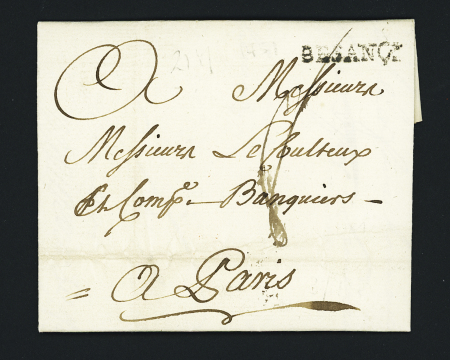 BESANÇON
A Messieurs
Messieurs Le Coulteux
Et Compe. Banquiers
A Paris